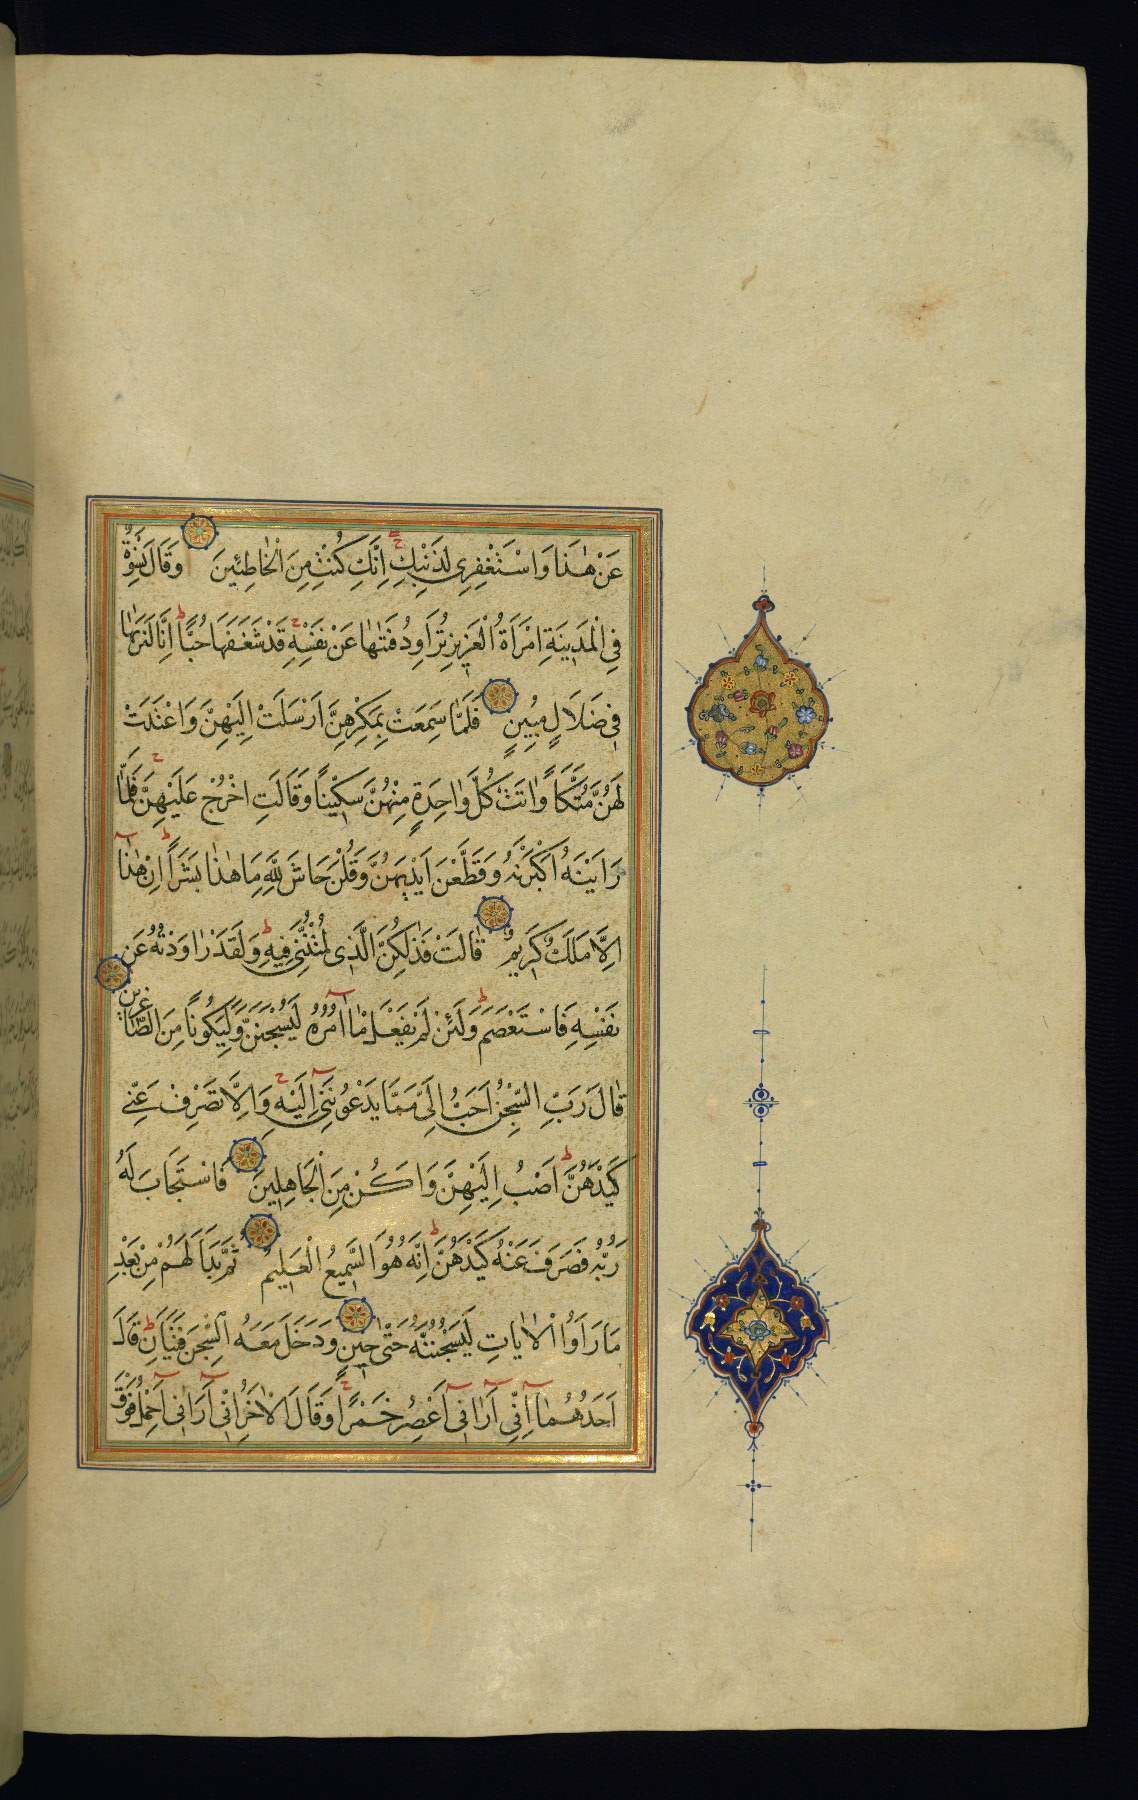 عَنْ هٰذَا وَاسْتَغْفِرِى لِذَنْبِكِ اِنَّكِ كُنْتِ مِنَ الْخَاطِئِينَ وَقَالَ نِسْوَةٌ
فِى الْمَدِينَةِ امْرَاَةُ الْعَزِيزِ تُرَاوِدُ فَتٰيهَا عَنْ نَفْسِهِ قَدْ شَغَفَهَا حُبًّا اِنَّا لَنَرٰيهَا
فِى ضَلَالٍ مُبِينٍ فَلَمَّا سَمِعَتْ بِمَكْرِهِنَّ اَرْسَلَتْ اِلَيْهِنَّ وَاَعْتَدَتْ
لَهُنَّ مُتَّكَاً وَاٰتَتْ كُلَّ وَاحِدَةٍ مِنْهُنَّ سِكِّينًا وَقَالَتِ اخْرُجْ عَلَيْهِنَّ فَلَمَّا
رَاَيْنَهُ اَكْبَرْنَهُ وَقَطَّعْنَ اَيْدِيَهُنَّ وَقُلْنَ حَاشَ لِلّٰهِ مَا هٰذَا بَشَرًا اِنْ هٰذَا
اِلَّا مَلَكٌ كَرِيمٌ قَالَتْ فَذٰلِكُنَّ الَّذِى لُمْتُنَّنِى فِيهِ وَلَقَدْ رَاوَدْتُهُ عَنْ
نَفْسِهِ فَاسْتَعْصَمَ وَلَئِنْ لَمْ يَفْعَلْ مَا اٰمُرُهُ لَيُسْجَنَنَّ وَلَيَكُونًا مِنَ الصَّاغِرِينَ
قَالَ رَبِّ السِّجْنُ اَحَبُّ اِلَىَّ مِمَّا يَدْعُونَنِى اِلَيْهِ وَاِلَّا تَصْرِفْ عَنِّى
كَيْدَهُنَّ اَصْبُ اِلَيْهِنَّ وَاَكُنْ مِنَ الْجَاهِلِينَ فَاسْتَجَابَ لَهُ
رَبُّهُ فَصَرَفَ عَنْهُ كَيْدَهُنَّ اِنَّهُ هُوَ السَّمِيعُ الْعَلِيمُ ثُمَّ بَدَا لَهُمْ مِنْ بَعْدِ
مَا رَاَوُا الْاٰيَاتِ لَيَسْجُنُنَّهُ حَتّٰى حِينٍ وَدَخَلَ مَعَهُ السِّجْنَ فَتَيَانِ قَالَ
اَحَدُهُمَا اِنِّى اَرٰانِى اَعْصِرُ خَمْرًا وَقَالَ الْاٰخَرُ اِنِّى اَرٰانِى اَحْمِلُ فَوْقَ